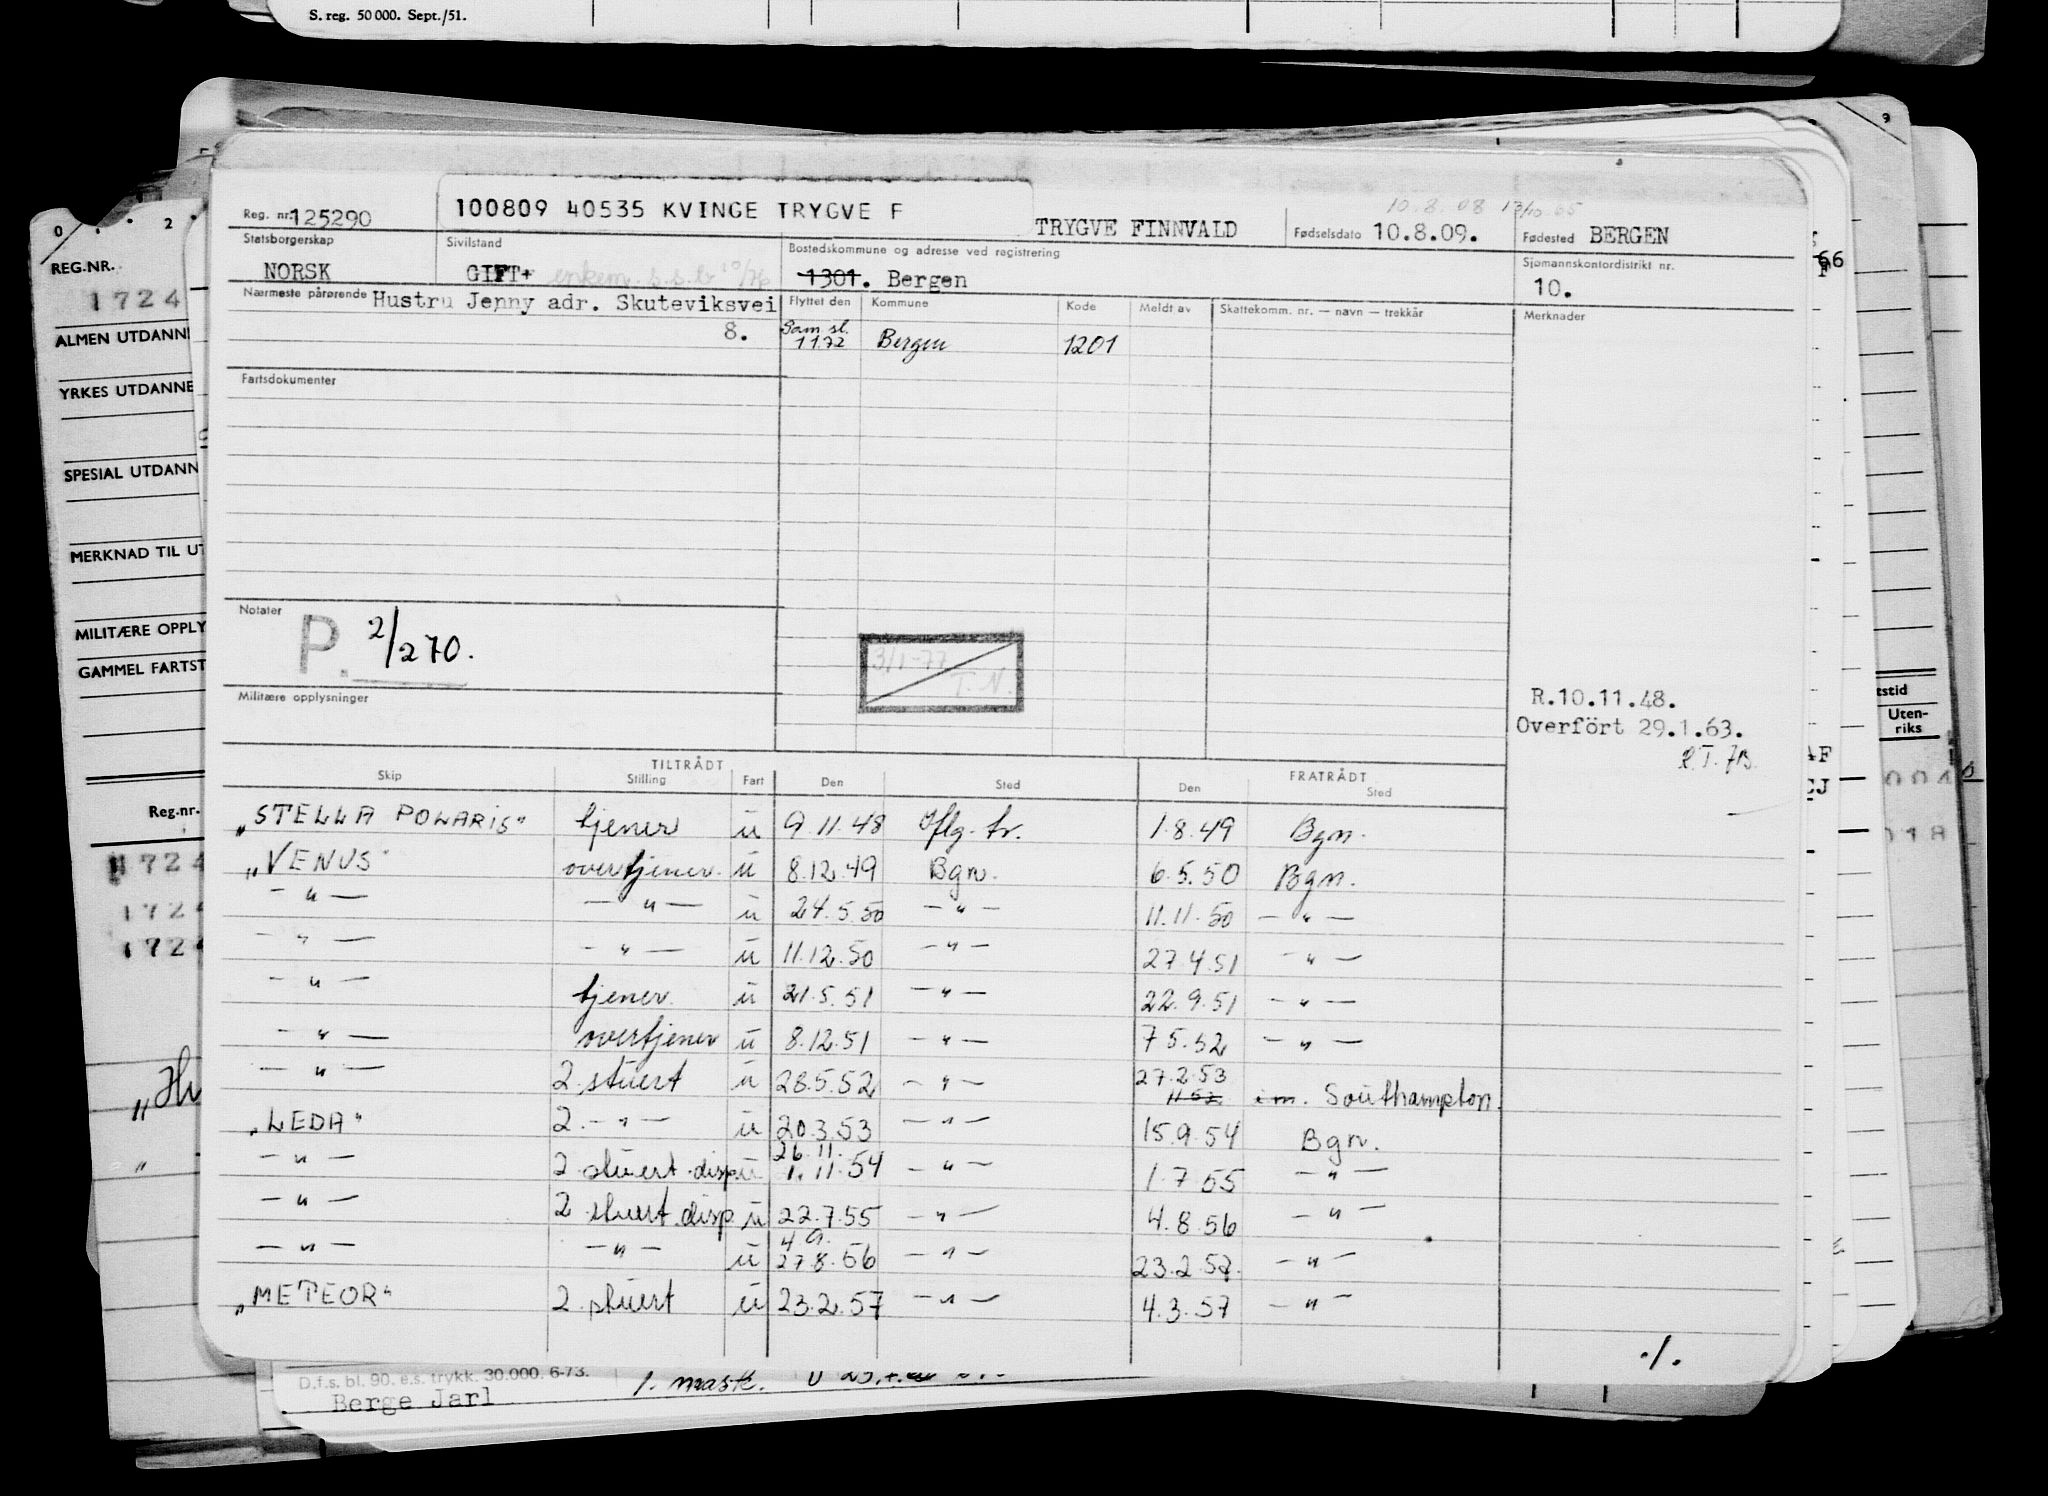 S. reg. 50 000. Sept./51.
9
0 2
REG.NR.
1724
ALMEN UTDANNE
YRKES UTDANNE
SPESIAL UTDANN
MERKNAD TIL UT
MILITÆRE OPPLY
GAMMEL FARTST
Reg.nr.
1724
1724
1724
Reg. nr. 125290
100809 40535 KVINGE TRYGVE F
TRYGVE FINNVALD
10.8.08 13/10 65
Fødselsdato 10.8.09.
Fødested BERGEN
Statsborgerskap NORSK
Sivilstand GIFT+ enkem. s.s.b 10/76
Bostedskommune og adresse ved registrering
1301. Bergen
Sjømannskontordistrikt nr.
10.
66
F
Nærmeste pårørende Hustru Jenny adr. Skuteviksvei
8.
Flyttet den Kommune Kode Meldt av Skattekomm. nr. — navn — trekkår Merknader
Sam.sl.
1172 Bergen 1201
Fartsdokumenter
Notater
P. 2/270.
3/1-77
T.N.
Militære opplysninger
R.10.11.48.
Overfört 29.1.63.
TILTRÅDT FRATRÅDT
Skip Stilling Fart Den Sted Den Sted
"STELLA POLARIS" tjener u 9.11.48 Iflg. tr. 1.8.49 Bgn.
"VENUS" overtjener u 8.12.49 Bgn. 6.5.50 Bgn.
— " — — " — u 24.5.50 — " — 11.11.50 — " —
— " — — " — u 11.12.50 — " — 27.4.51 — " —
— " — tjener u 21.5.51 — " — 22.9.51 — " —
— " — overtjener u 8.12.51 — " — 7.5.52 — " —
— " — 2. stuert u 28.5.52 — " — 27.2.53 i m. Southampton.
"LEDA" 2. — " — u 20.3.53 — " — 15.9.54 Bgn.
26.11.
— " — 2 stuert disp u 1.11.54 — " — 1.7.55 — " —
— " — 2 stuert disp u 22.7.55 — " — 4.8.56 — " —
4 9.
— " — — " — u 27.8.56 — " — 23.2.57. — " —
"METEOR" 2. stuert u 23.2.57 — " — 4.3.57 — " —
./.
tstid
Uten-
riks
D.f.s. bl. 90. e.s. trykk. 30.000. 6-73.
Berge Jarl 1. mask. u